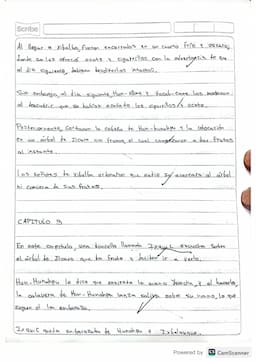 Scribe
Al llegar a Xibalba, fueron encerrados en un cuarto frio e oscuro,
donde se les ofreció ocote y cigarrillos con la advertencia de que
al dia siguiente, debian devolverlos intactos.
Sin embargo, al dia siguiente, Hun-Came y Vucub-Came los
al descubrir que se habian acabado los cigarrillos y ocote.
Posteriormente, cortaron la cabeza de Hun-hunahpu y la colocaron
en un árbol de Jicaro sin frutos, el cual comenzó a dar frutos
al instante.
Los señores de Xibalba ordenaron que nadie se acercara al árbol
ni comiera de sus frutos.
CAPITULO 3
En este capitulo, una doncella llamada Ixquic escucha sobre
el árbol de Jicaro que da frutos y decide ir a verlo.
Hun-Hunahpu le dice que extienta la mano derecha, y al hacerlo,
la calavera de Hun-Hunahpu lanza saliva sobre su mano, lo que
la embaraza.
Ixquic queda embarazada de Hunahpu e Ixbalanque.
Powered by CS CamScanner